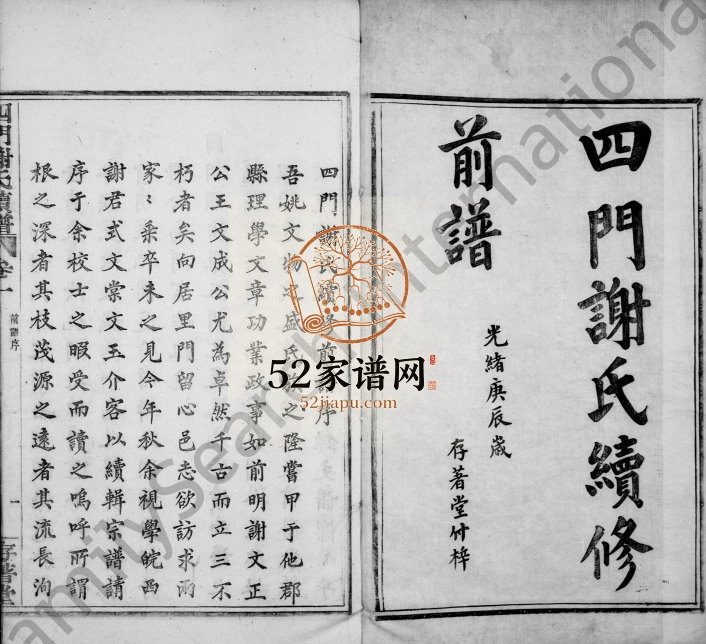 四門謝氏續修
前譜
光緒庚辰歲
存著堂付梓
四門謝氏續修前譜序
吾姚文物之盛氏族之隆嘗甲于他郡
縣理學文章功業政事如前明謝文正
公王文成公尤為卓然千古而立三不
朽者矣向居里門留心邑志欲訪求而
家〻乘卒未之見今年秋余視學皖西
謝君式文棠文玉介客以續輯宗譜請
序于余校士之暇受而讀之嗚呼所謂
根之深者其枝茂源之遠者其流長洵
四門謝氏續譜
卷一
前譜序
一
存著堂
52家谱网
52jiapu.com
FamilySearch International